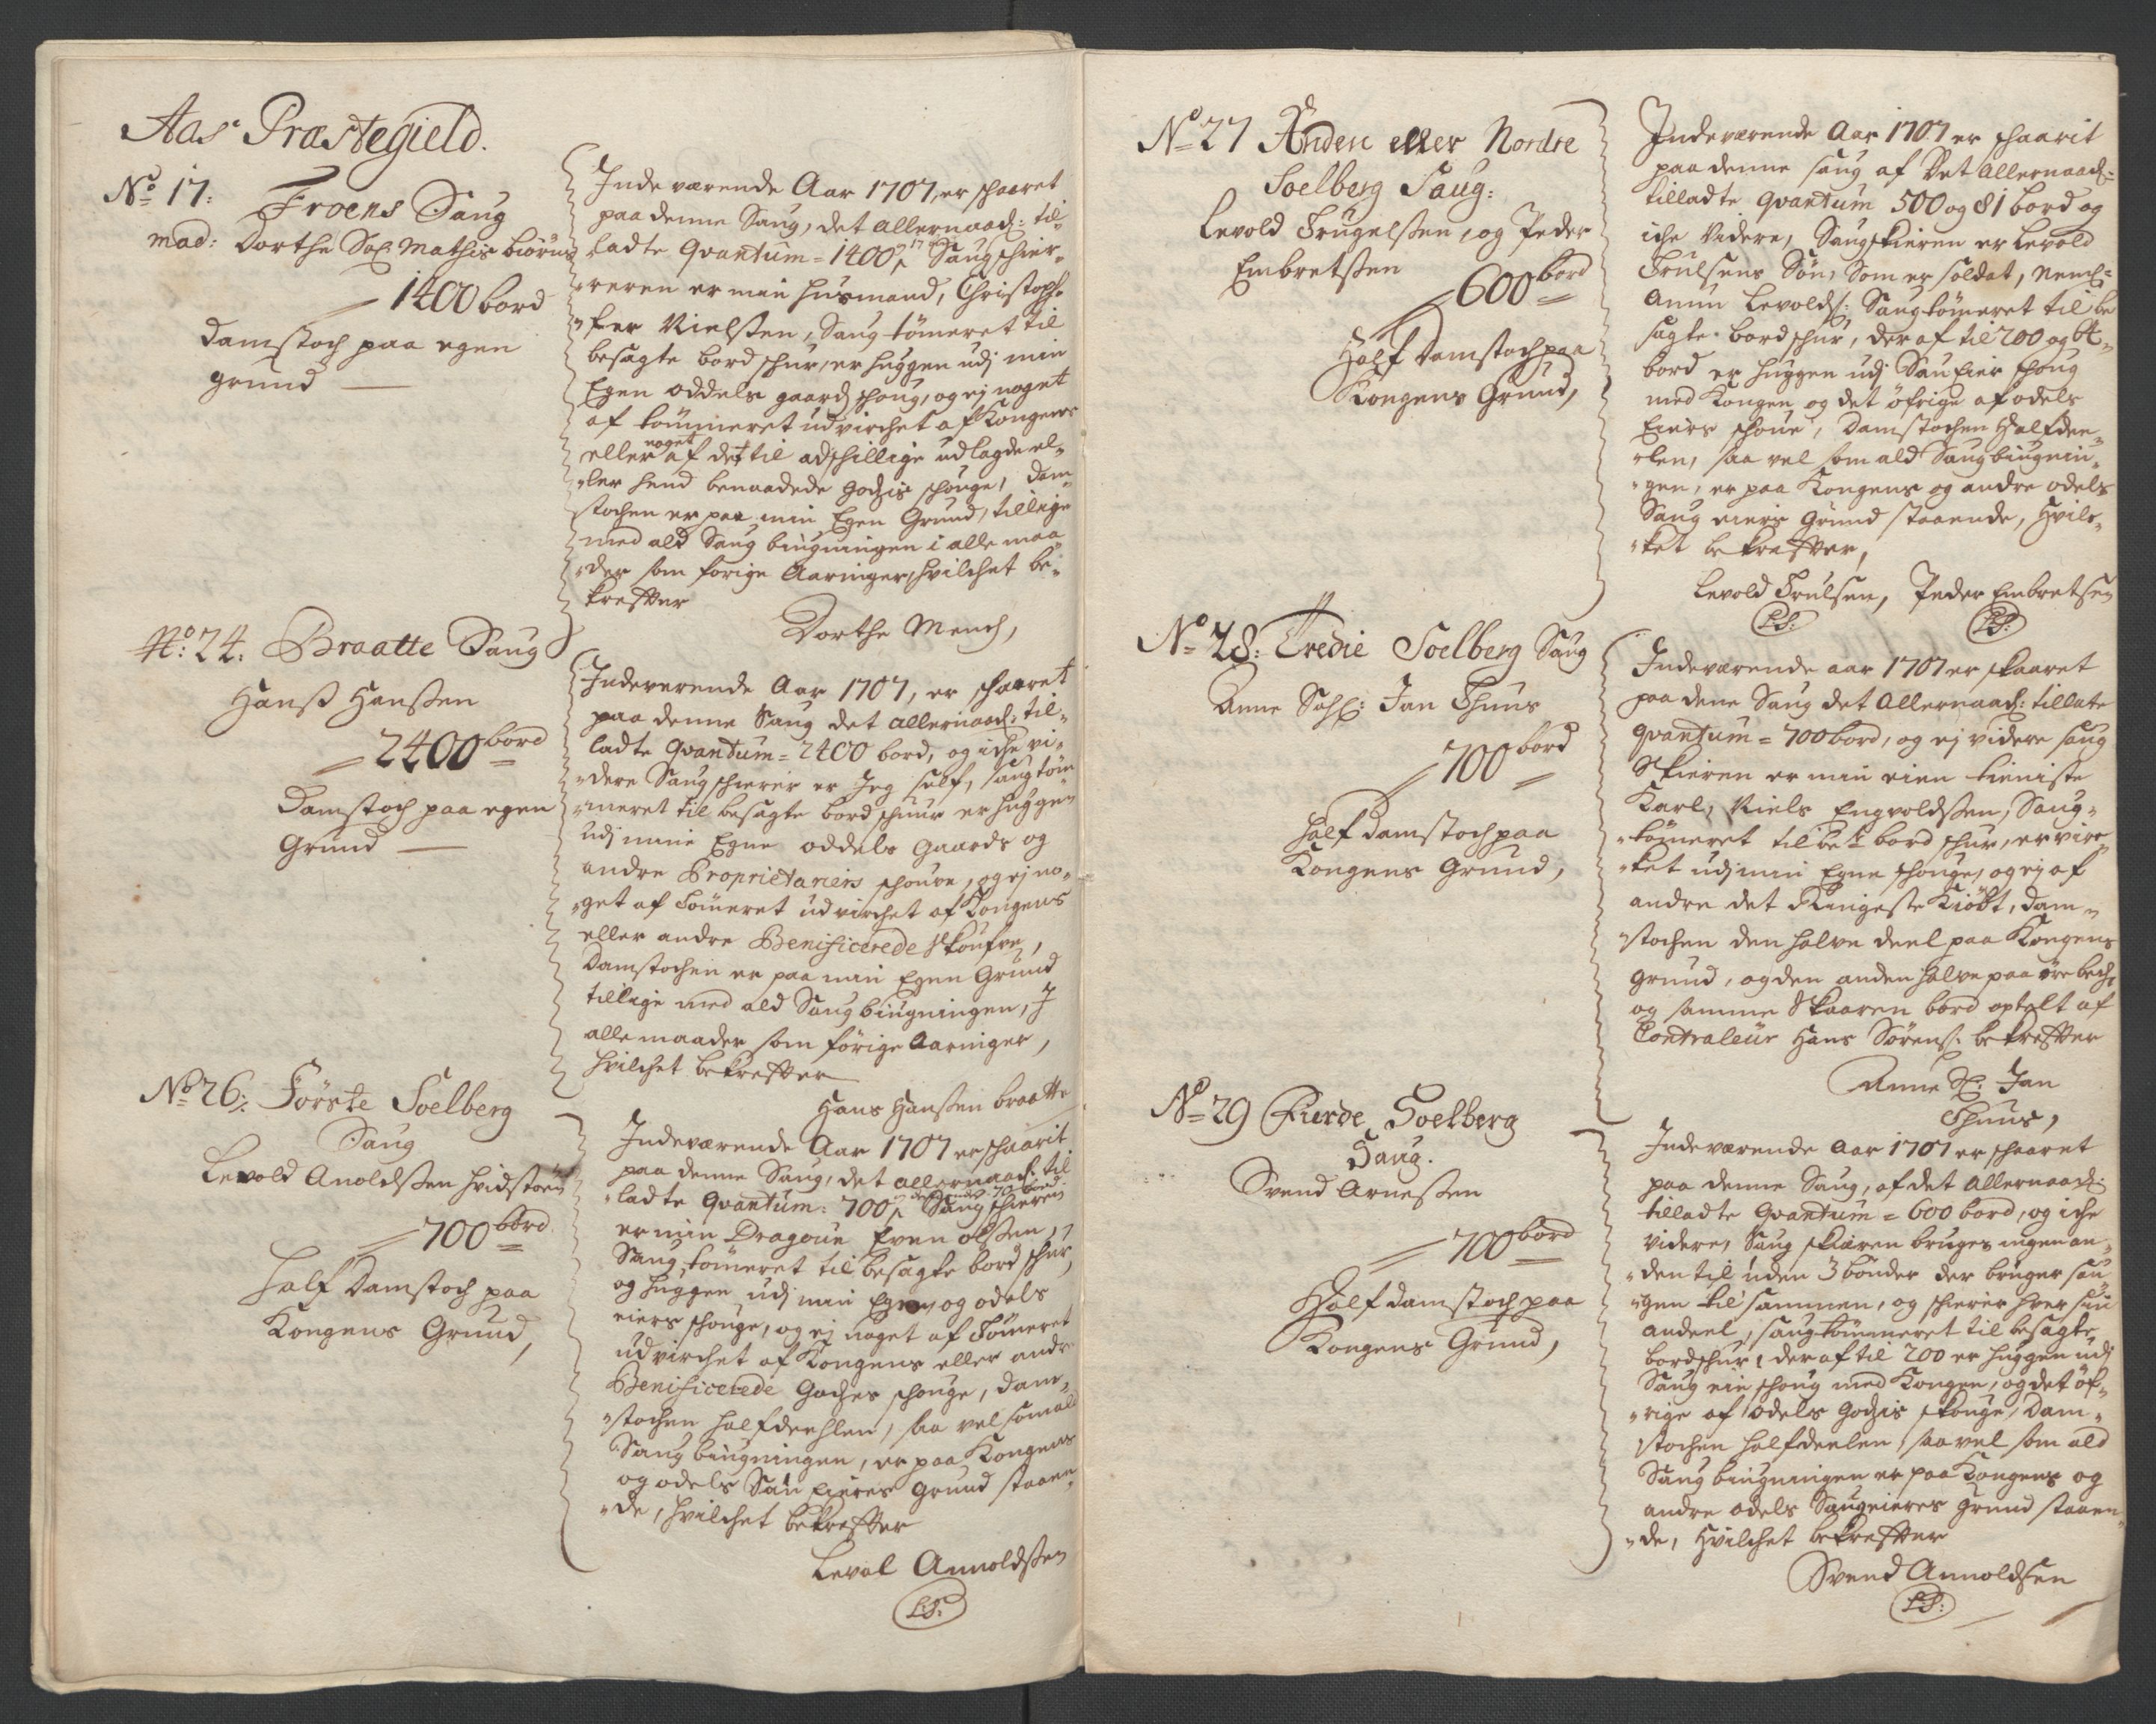 Aas Præstegield.
No 17: Froens Saug
mad: Dorthe Sal. Mathis biörns
1400 bord
Damstoch paa egen
grund
Inde værende Aar 1707, er schaaret
paa denne Saug, det allernaad: til-
ladte Qvantum = 1400, Saugschier-
reren er min Husmand, Christoph-
fer Nielssen, Saug tömeret til
besagte bord schur, er huggen udj min
Egen oddels gaards schoug, og ej noget
af tömmeret udvirchet af Kongens
eller noget af det til adschillige udlagde el-
ler hend benaadede Godzis schouge, Dam-
stochen er paa min Egen Grund, tillige
med ald Saug biugningen i alle maa-
der som forige Aaringer, hvilchet be-
krefter
Dorthe Mench,
No: 24. Braatte Saug
Hanss Hanssen
2400 bord
Damstoch paa egen
Grund
Indeverende Aar 1707, er schaaret
paa denne Saug det allernaad: til-
ladte Qvantum = 2400 bord, og iche vi-
dere Saugschierer er Jeg self, saugtöm-
meret til besagte bord schuur er huggen
udj mine Egne oddels Gaards og
andre Proprietariers schouve, og ej no-
get af Tömeret udvirchet af Kongens
eller andre Benificerede skoufve,
Damstochen er paa min Egen Grund
tillige med ald Saug biugningen, J
alle maader som förige Aaringer,
hvilchet bekrefter
Hans Hanssen braatte
No 26: Förste Soelberg
Saug
Levold Anoldssen Hvidstoen
700 bord
Half Damstoch paa
Kongens Grund,
Indeværende Aar 1707 er schaarit
paa denne Saug, det allernaad: til
ladte Qvantum: 700, Saug schieren
er min Dragoun Even olssen,
Saug tömeret til besagte bord schur,
og huggen udj min Egen og odels
eiers schouge, og ej noget af Tömeret
udvirchet af Kongens eller andre
Benificerede Godzes schouge, Dam-
stochen halfdeehlen, saa vel som ald
Saug biugningen, er paa Kongens
og odels Sau Eieres Grund staaen-
de, hvilchet bekrefter
Leval Annoldssen
L.S.
No 27 Anden eller Nordre
Soelberg Saug:
Levold Trugelssen, og Peder
Embretssen
600 bord
Half Damstoch paa
Kongens Grund,
Indeværende Aar 1707 er schaarit
paa denne saug af Det Allernaad:
tilladte Qvantum 500 og 81 bord og
iche Videre, Saugskieren er Levold
Trulsens Sön, Som er soldat, Neml:
Amun Levolds: Saugtömeret til be
sagte bord schur, der af til 200 og
bord er huggen udj Sau Eier schoug
med Kongen og det öfrige af odels
Eiers schoue, Damstochen Halfdee-
len, saa vel som ald Saug biugnin-
gen, er paa Kongens og andre odels
Saug eiers Grund staaende, Hvil-
ket bekrefter,
Levold Trulsen, Peder Embretsen
L.S. L.S.
No 28: Tredie Soelberg Saug
Anne Sahl: Jan Thuus
700 bord
half Damstoch paa
Kongens Grund,
Indeværende aar 1707 er skaaret
paa dene Saug det Allernaad: tillate
Qvantum = 700 bord, og ej videre saug
Skieren er min eien tieniste
Karl, Niels Engvoldssen, Saug-
tömeret til bete bord schur, er vir-
ket udj min Egne schouge, og ej af
andre det Ringeste Kiöbt, Dam-
stochen den halve deel paa Kongens
grund, og den anden halve paa örebech,
og samme Skaaren bord optalt af
Contraleür Hans Sörens: bekrefter
Anne Sl: Jan
Thuus,
No 29 Fierde Soelberg
Saug.
Svend Arnessen
700 bord
Half damstoch paa
Kongens Grund,
Indeværende Aar 1707 er schaaret
paa denne Saug, af det Allernaad:
tilladte Qvantum = 600 bord, og iche
videre, Saug skiæren bruges ingen an-
den til uden 3 bönder der bruger sau-
gen til sammen, og schierer hver sin
andeel, saugtömmeret til besagte
bordschur, der af til 200 er huggen udj
Saug eie schoug med Kongen, og det öf-
rige af odels Godzis skouge, Dam-
stochen halfdeelen saa vel som ald
Saug biugningen er paa Kongens og
andre odels Saugeieres grund staaen-
de, Hvilchet bekrefter
Svend Annoldsen
L.S.